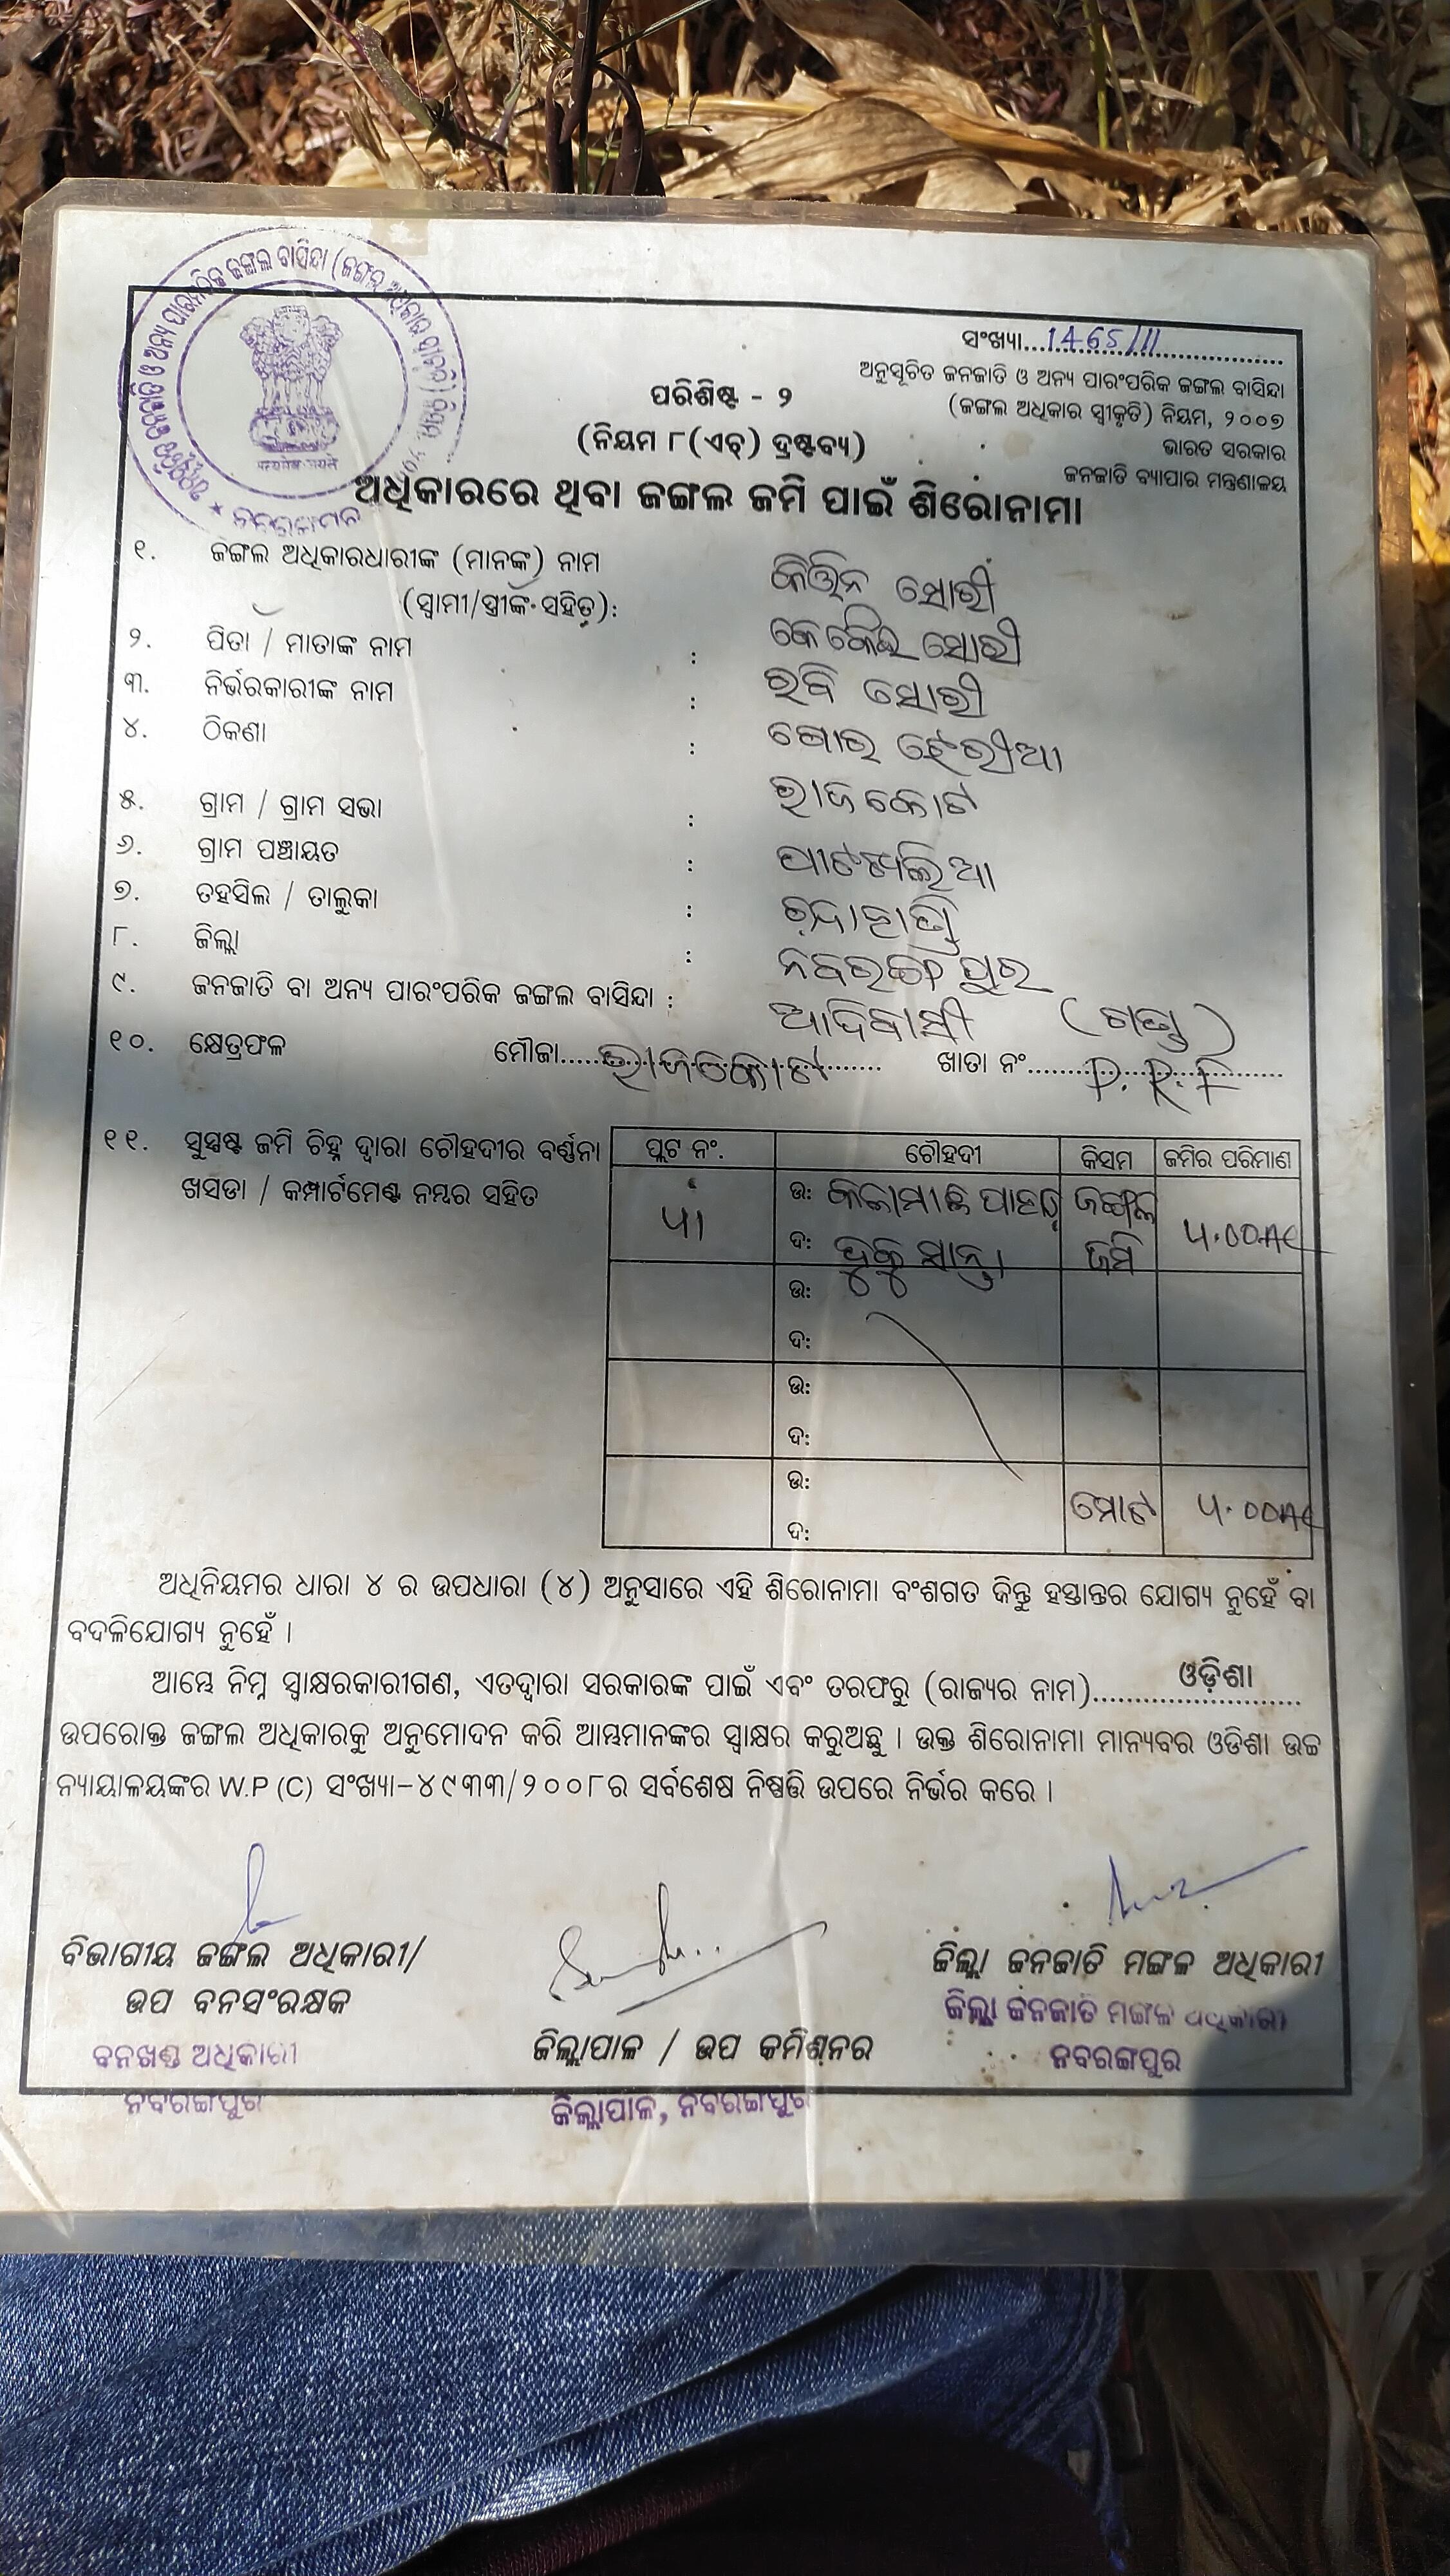 ଅନୁସୂଚିତ ଜନଜାତି ଓ ଅନ୍ୟ ପାରଂପରିକ ଜଙ୍ଗଲ ବାସିନ୍ଦା (ଜଙ୍ଗଲ ଅଧିକାର
ସଂଖ୍ୟା 1465/11
ଅନୁସୂଚିତ ଜନଜାତି ଓ ଅନ୍ୟ ପାରଂପରିକ ଜଙ୍ଗଲ ବାସିନ୍ଦା
(ଜଙ୍ଗଲ ଅଧିକାର ସ୍ୱୀକୃତି) ନିୟମ, ୨୦୦୭
ଭାରତ ସରକାର
ଜନଜାତି ବ୍ୟାପାର ମନ୍ତ୍ରଣାଳୟ
ପରିଶିଷ୍ଟ - ୨
(ନିୟମ ୮(ଏଚ୍) ଦ୍ରଷ୍ଟବ୍ୟ)
ଅଧିକାରରେ ଥିବା ଜଙ୍ଗଲ ଜମି ପାଇଁ ଶିରୋନାମା
୧. ଜଙ୍ଗଲ ଅଧିକାରଧାରୀଙ୍କ (ମାନଙ୍କ) ନାମ
(ସ୍ୱାମୀ/ସ୍ତ୍ରୀଙ୍କ ସହିତ): ସୋରୀ
୨. ପିତା / ମାତାଙ୍କ ନାମ : ସୋରୀ
୩. ନିର୍ଭରକାରୀଙ୍କ ନାମ : ରବି ସୋରୀ
୪. ଠିକଣା :
୫. ଗ୍ରାମ / ଗ୍ରାମ ସଭା : ରାଜକୋଟ
୬. ଗ୍ରାମ ପଞ୍ଚାୟତ :
୭. ତହସିଲ / ତାଲୁକା :
୮. ଜିଲ୍ଲା : ନବରଙ୍ଗପୁର
୯. ଜନଜାତି ବା ଅନ୍ୟ ପାରଂପରିକ ଜଙ୍ଗଲ ବାସିନ୍ଦା : ଆଦିବାସୀ
୧୦. କ୍ଷେତ୍ରଫଳ ମୌଜା ରାଜକୋଟ ଖାତା ନଂ D.R.F
୧୧. ସୁସ୍ପଷ୍ଟ ଜମି ଚିହ୍ନ ଦ୍ୱାରା ଚୌହଦୀର ବର୍ଣ୍ଣନା
ଖସଡା / କମ୍ପାର୍ଟମେଣ୍ଟ ନମ୍ବର ସହିତ
ପ୍ଲଟ ନଂ. ଚୌହଦୀ କିସମ ଜମିର ପରିମାଣ
ଉ: ପାହାଡ଼ ଜଙ୍ଗଲ
ଦ: ଜମି
ଉ:
ଦ:
ଉ:
ଦ:
ଉ: ମୋଟ
ଦ:
ଅଧିନିୟମର ଧାରା ୪ ର ଉପଧାରା (୪) ଅନୁସାରେ ଏହି ଶିରୋନାମା ବଂଶଗତ କିନ୍ତୁ ହସ୍ତାନ୍ତର ଯୋଗ୍ୟ ନୁହେଁ ବା
ବଦଳିଯୋଗ୍ୟ ନୁହେଁ ।
ଆମ୍ଭେ ନିମ୍ନ ସ୍ୱାକ୍ଷରକାରୀଗଣ, ଏତଦ୍ୱାରା ସରକାରଙ୍କ ପାଇଁ ଏବଂ ତରଫରୁ (ରାଜ୍ୟର ନାମ) ଓଡ଼ିଶା
ଉପରୋକ୍ତ ଜଙ୍ଗଲ ଅଧିକାରକୁ ଅନୁମୋଦନ କରି ଆମ୍ଭମାନଙ୍କର ସ୍ୱାକ୍ଷର କରୁଅଛୁ । ଉକ୍ତ ଶିରୋନାମା ମାନ୍ୟବର ଓଡିଶା ଉଚ୍ଚ
ନ୍ୟାୟାଳୟଙ୍କର W.P (C) ସଂଖ୍ୟା-୪୯୩୩/୨୦୦୮ର ସର୍ବଶେଷ ନିଷ୍ପତ୍ତି ଉପରେ ନିର୍ଭର କରେ ।
ବିଭାଗୀୟ ଜଙ୍ଗଲ ଅଧିକାରୀ/
ଉପ ବନସଂରକ୍ଷକ
ବନଖଣ୍ଡ ଅଧିକାରୀ
ନବରଙ୍ଗପୁର
ଜିଲ୍ଲାପାଳ / ଉପ କମିଶନର
ଜିଲ୍ଲାପାଳ, ନବରଙ୍ଗପୁର
ଜିଲ୍ଲା ଜନଜାତି ମଙ୍ଗଳ ଅଧିକାରୀ
ଜିଲ୍ଲା ଜନଜାତି ମଙ୍ଗଳ ଅଧିକାରୀ
ନବରଙ୍ଗପୁର